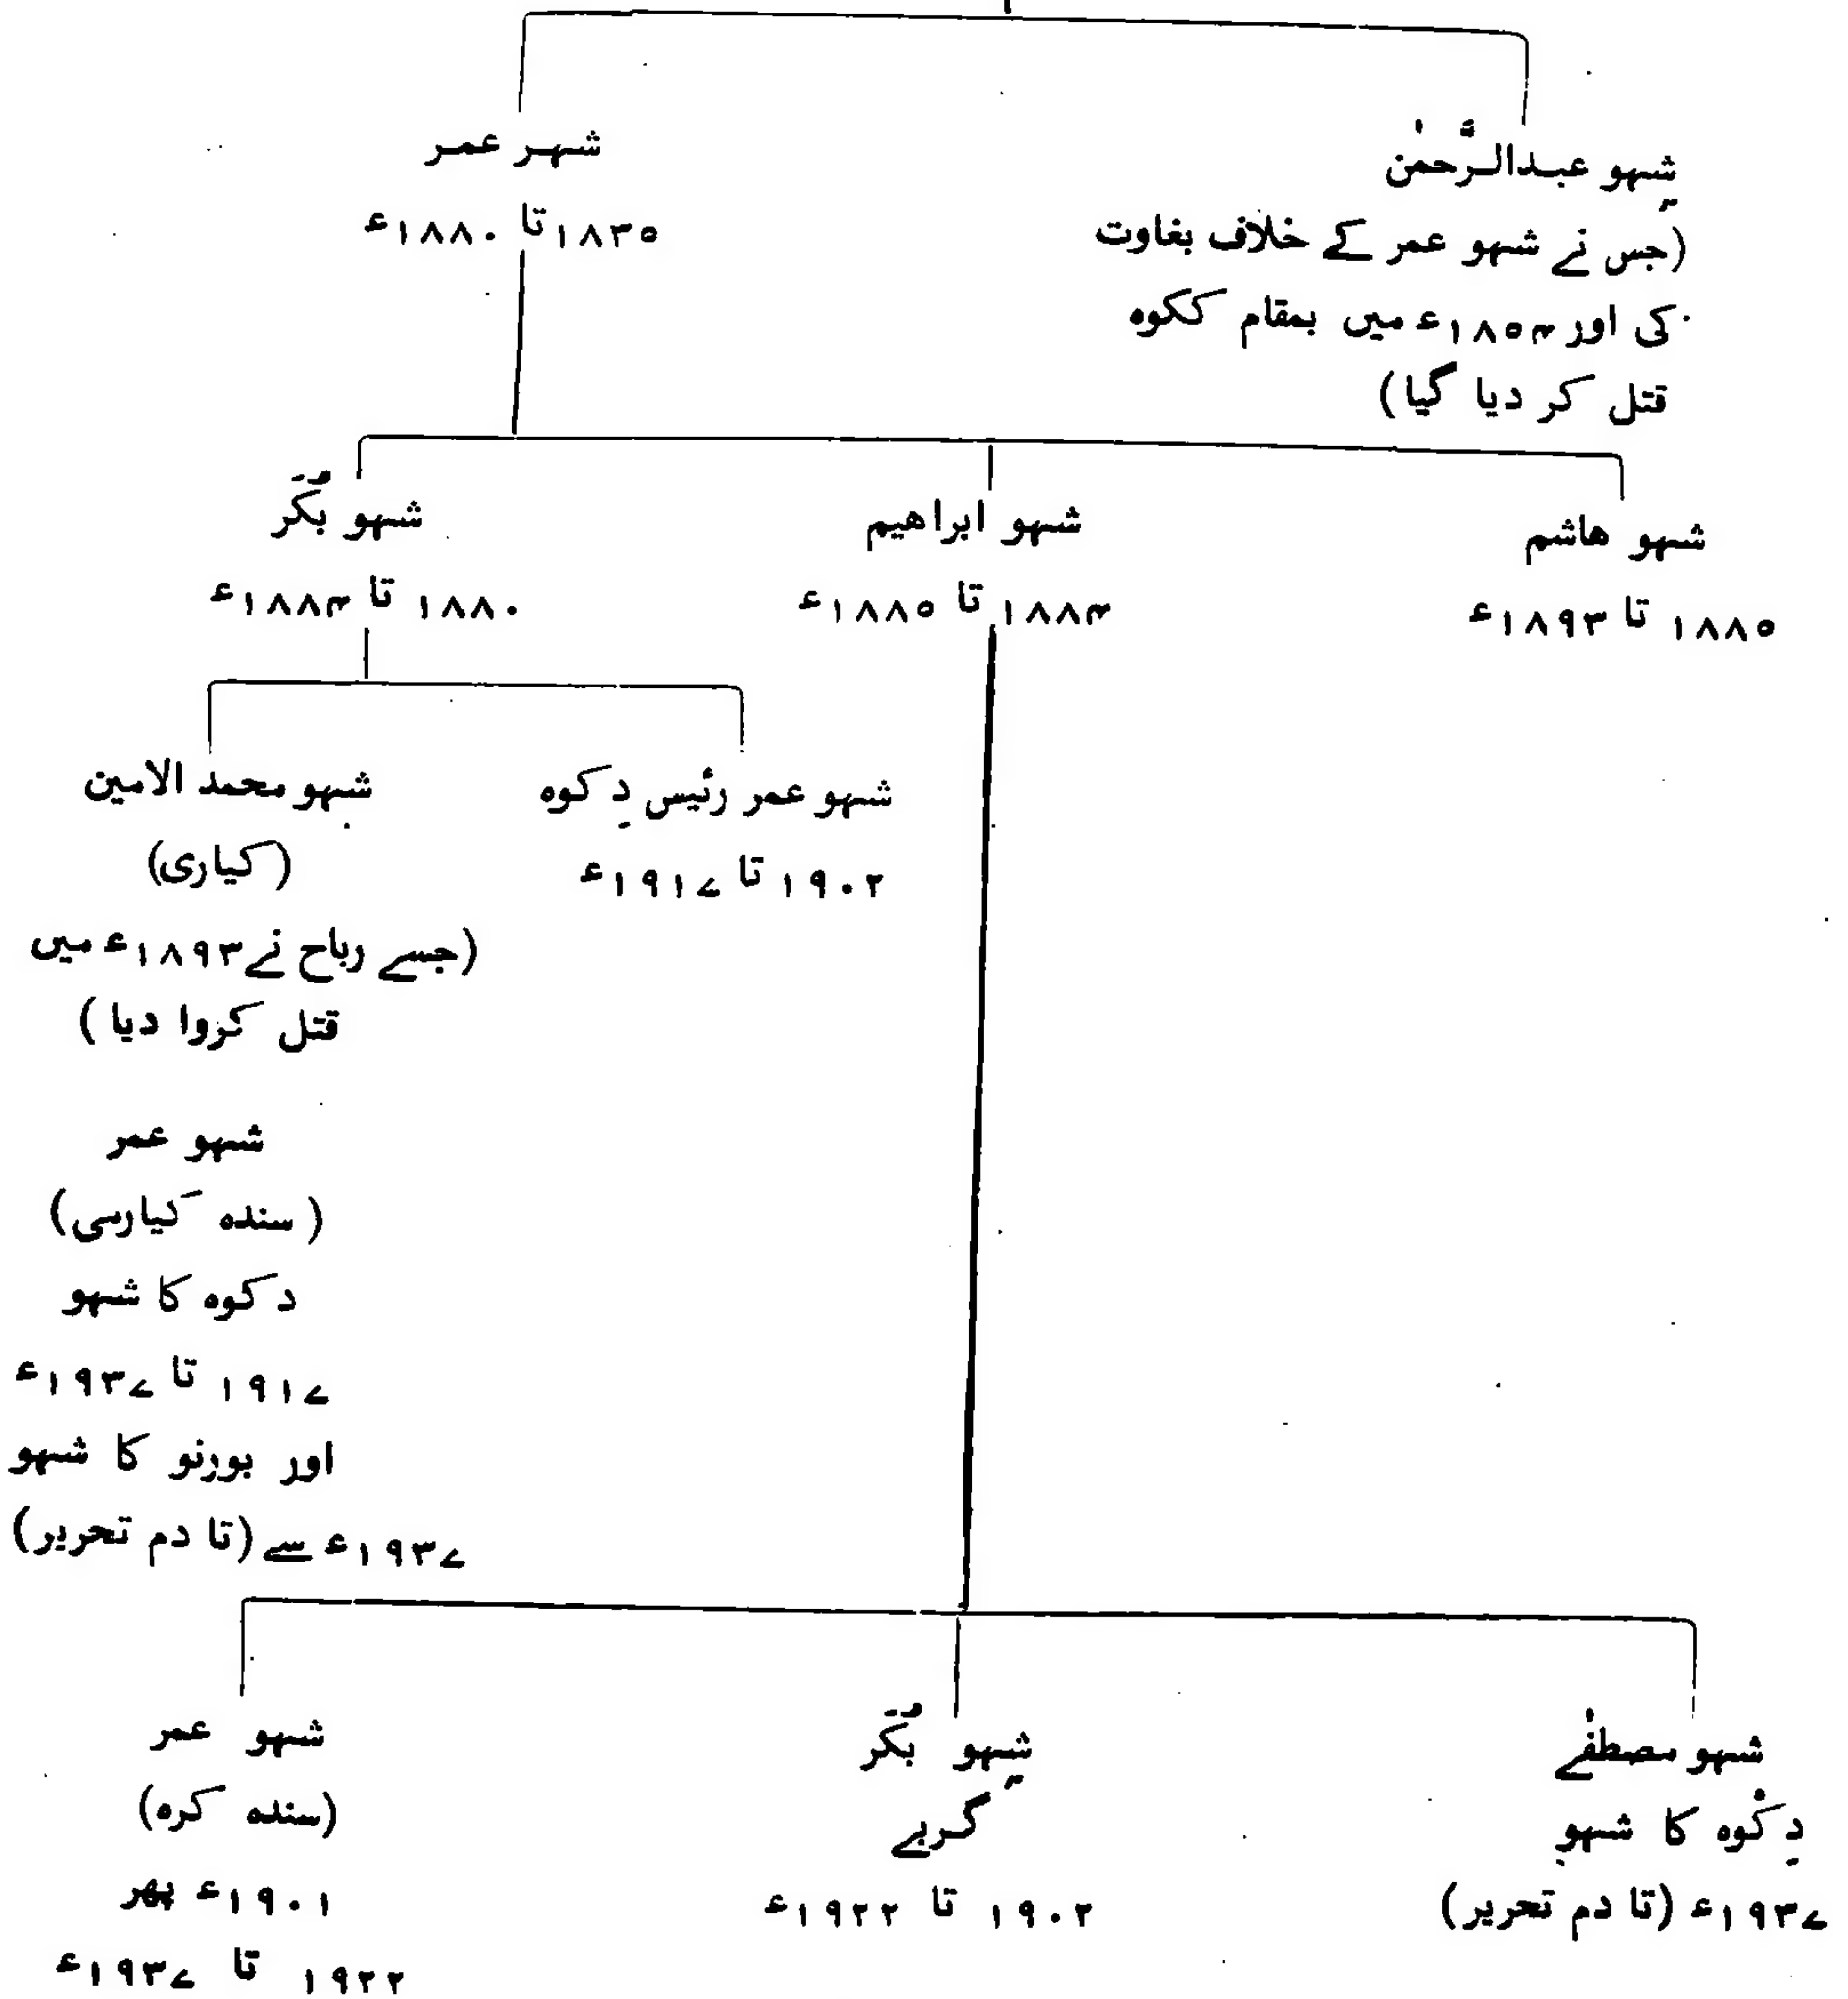 شِہو عبدالرَّحمٰن
(جس نے شہو عمر کے خلاف بغاوت
کی اور ۱۸۵۴ء میں بمقام ککوہ
قتل کر دیا گیا)
شہر عمر
۱۸۳۵ تا ۱۸۸۰ء
شہو ھاشم
۱۸۸۵ تا ۱۸۹۳ء
شہو ابراھیم
۱۸۸۴ تا ۱۸۸۵ء
شہو بُکَر
۱۸۸۰ تا ۱۸۸۴ء
شہو عمر رئیس دِکوہ
۱۹۰۲ تا ۱۹۱۷ء
شہو محمد الامین
(کیاری)
(جسے رباح نے ۱۸۹۳ء میں
قتل کروا دیا)
شہو عمر
(سندہ کیارسی)
دکوہ کا شہو
۱۹۱۷ تا ۱۹۳۷ء
اور بورنو کا شہو
۱۹۳۷ء سے (تا دم تحریر)
شہو مصطفٰے
دِکْوہ کا شہو
۱۹۳۷ء (تا دم تحریر)
شِہو بُکَر
گربے
۱۹۰۲ تا ۱۹۲۲ء
شہو عمر
(سندہ کرہ)
۱۹۰۱ء پھر
۱۹۲۲ تا ۱۹۳۷ء